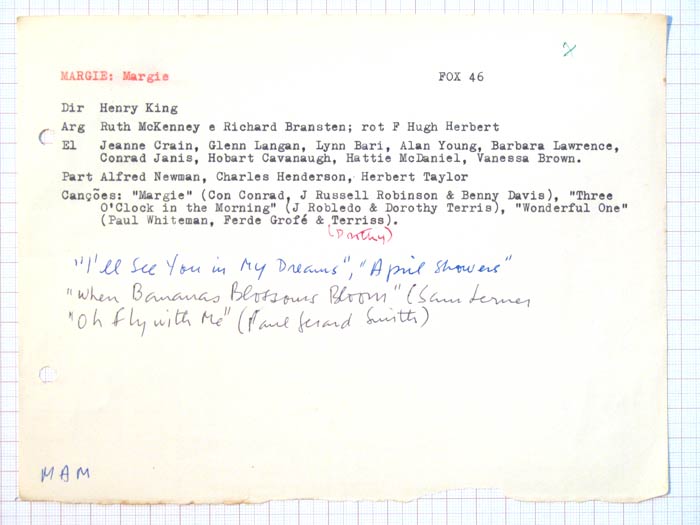 MARGIE: Margie FOX 46
Dir Henry King
Arg Ruth McKenney e Richard Bransten; rot F Hugh Herbert
El Jeanne Crain, Glenn Langan, Lynn Bari, Alan Young, Barbara Lawrence,
Conrad Janis, Hobart Cavanaugh, Hattie McDaniel, Vanessa Brown.
Part Alfred Newman, Charles Henderson, Herbert Taylor
Canções: "Margie" (Con Conrad, J Russell Robinson & Benny Davis), "Three
O'Clock in the Morning" (J Robledo & Dorothy Terris), "Wonderful One"
(Paul Whiteman, Ferde Grofé & Terriss).
(Dorothy)
"I'll See You in My Dreams", "April Showers"
"When Bananas Blossoms Bloom" (Sam Lerner
"Oh Fly with Me" (Paul Gerard Smith)
MAM